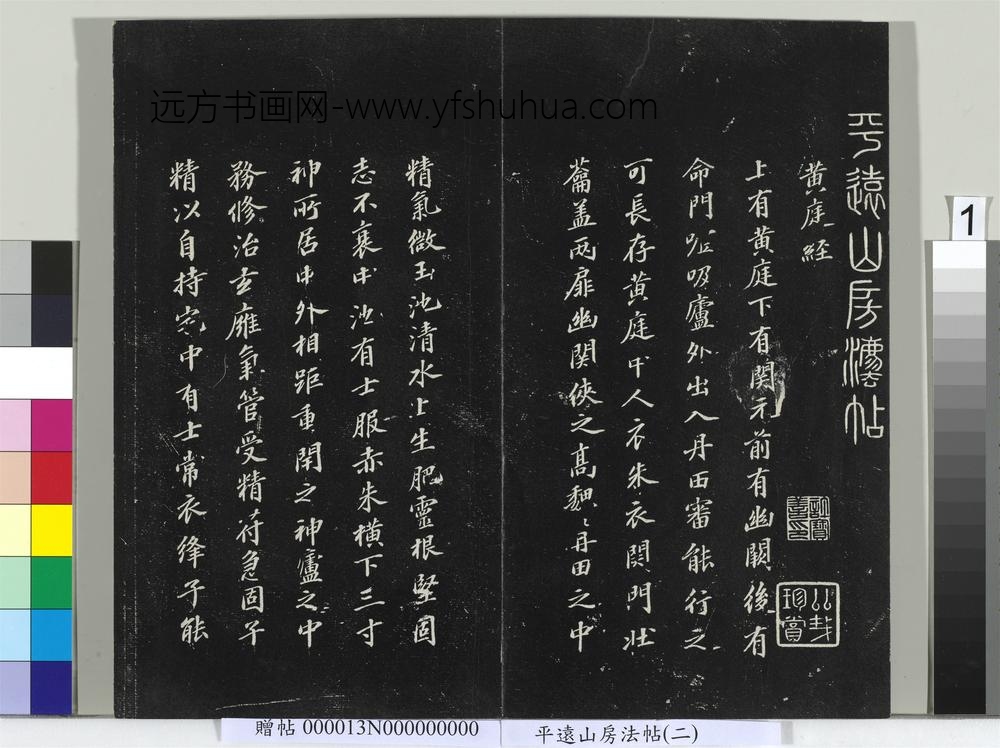 平遠山房灋帖
黄庭經
上有黄庭下有関元前有幽闕後有
命門呼吸廬外出入丹田審能行之
可長存黄庭中人衣朱衣関門壯
蘥盖兩扉幽関俠之髙巍〻丹田之中
精氣微玉池清水上生肥靈根堅固
志不衰中池有士服赤朱橫下三寸
神所居中外相距重閇之神廬之中
務修治玄㢕氣管受精符急固子
精以自持宅中有士常衣絳子能
珍賞
远方书画网-www.yfshuhua.com
1
贈帖 000013N000000000
平遠山房法帖(二)